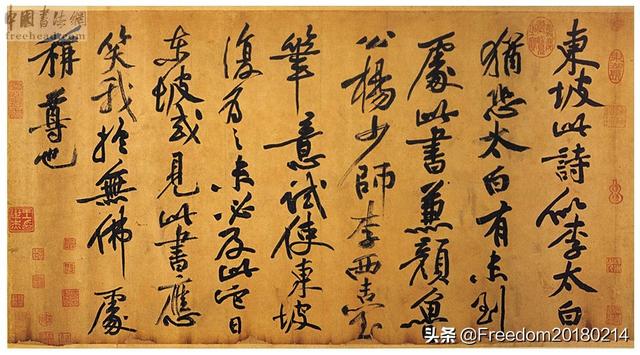 中國書法網
freehead.com
東坡此詩似李太白
猶恐太白有未到
處此書兼顏魯
公楊少師李西臺
筆意試使東坡
復為之未必及此它日
東坡或見此書應
笑我於無佛處
稱尊也
头条 @Freedom20180214